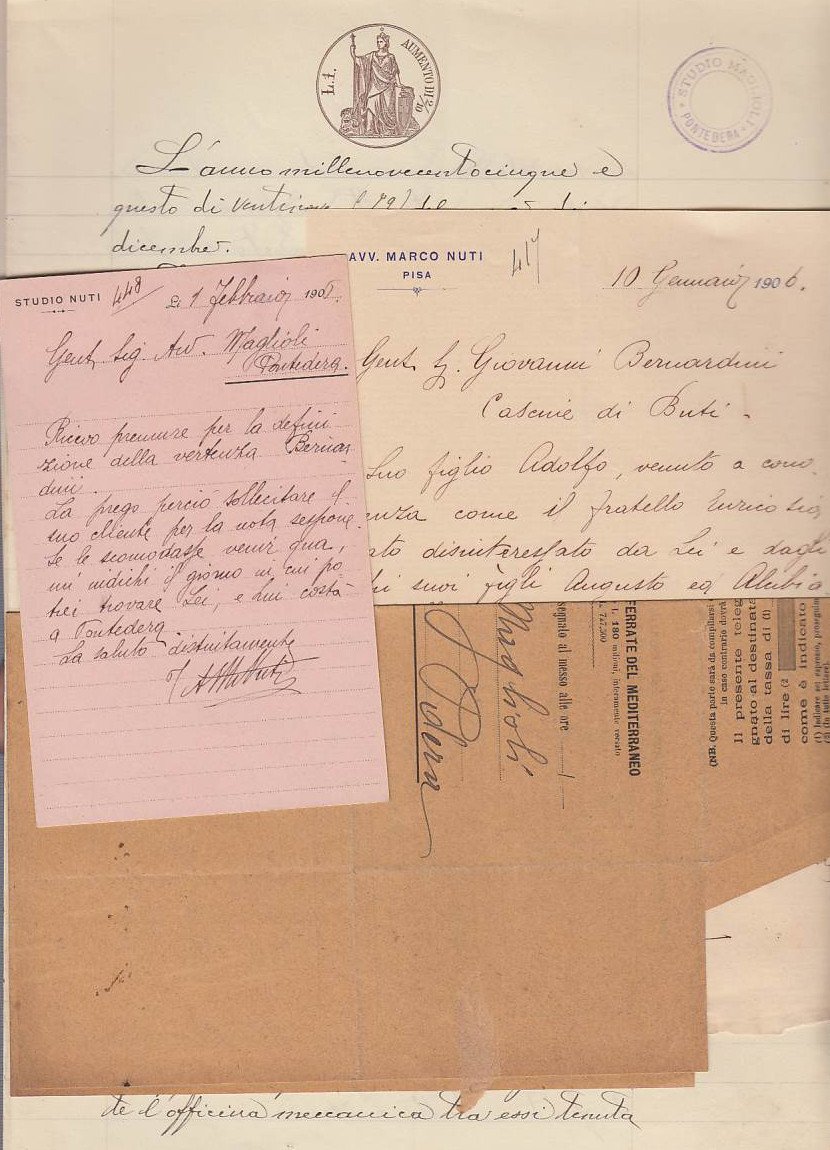 L.1.
AUMENTO DI 2/10
STUDIO MAGLIOLI
PONTEDERA
L'anno millenovecentocinque e
questo di ventinove (29) del
dicember.
AVV. MARCO NUTI
PISA
417
10 Gennaio 1906.
Gent. Sig. Giovanni Bernardini
Cascine di Buti -
Suo figlio Adolfo, venuto a cono
enza come il fratello Enrico sia
ato disinteressato da Lei e dagli
suoi figli Augusto ed
STUDIO NUTI
448
Li 1 Febbraio 190
Gent. Sig. Avv. Maglioli
Pontedera.
Ricevo premure per la defini
zione della vertenza Bernar
dini.
La prego perciò sollecitare il
suo cliente per la nota
Se le scomodasse venir qua,
mi indichi il giorno in cui po
trei trovare Lei, e lui costà
a Pontedera
La saluto distintamente
Maglioli
Pdera
segnato al messo alle ore
FERRATE DEL MEDITERRANEO
180 milioni, interamente versato
(NB. Questa parte sarà da compilarsi
in caso contrario dovrà
Il presente teleg
gnato al destinata
della tassa di (1)
di lire (2
come è indicato
te l'officina meccanica tra essi tenuta